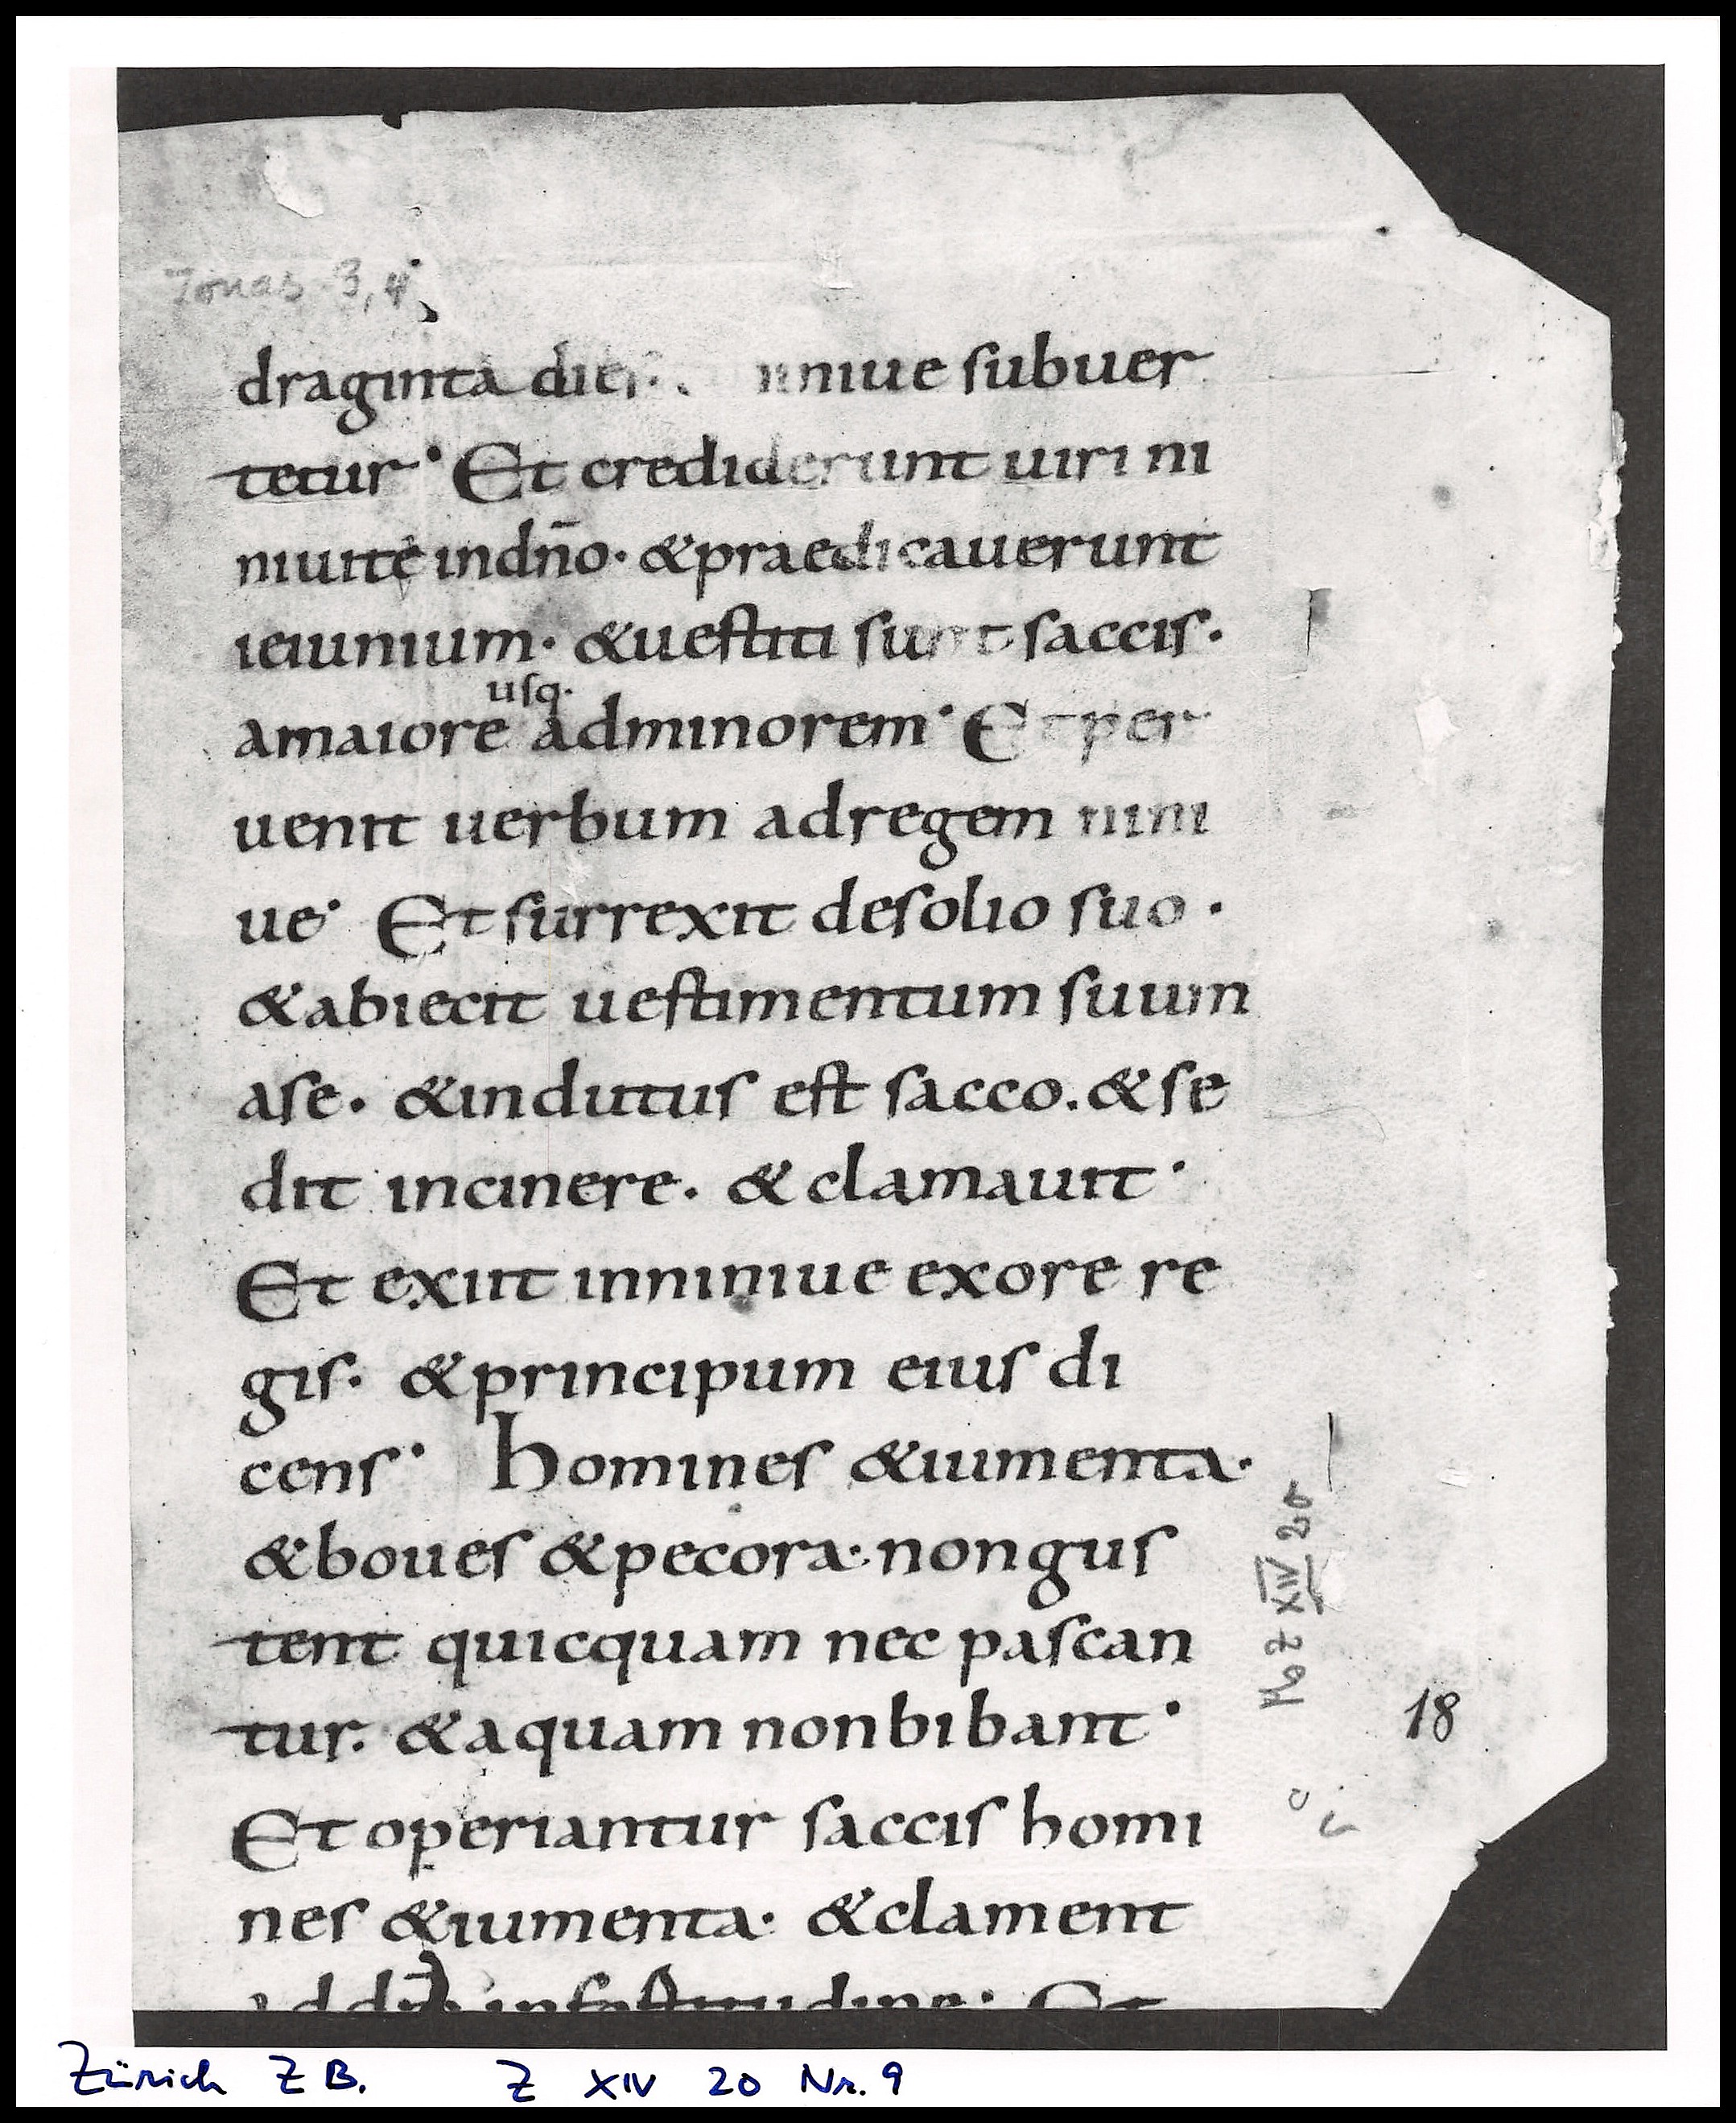 Jonas 3,4
draginta dies. niniue subuer
tetur· Et crediderunt uiri ni
niuite indn̄o· &praedicauerunt
ieiunium· &uestiti sunt saccis·
usq·
amaiore adminorem· Et per
uenit uerbum adregem nini
ue· Et surrexit desolio suo·
&abiecit uestimentum suum
ase· &indutus est sacco. &se
dit incinere· & clamauit·
Et exiit inniniue exore re
gis· &principum eius di
cens· Homines &iumenta·
&boues &pecora· nongus
tent quicquam nec pascan
tur· &aquam nonbibant·
Et operiantur saccis homi
nes &iumenta· &clament
infortitudine· Et
Z XIV 20
18
Zürich ZB. Z XIV 20 Nr. 9